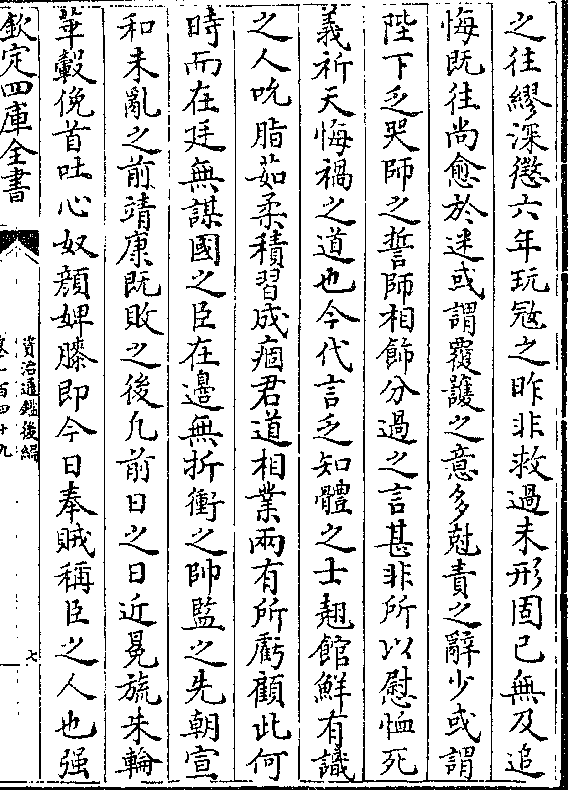 之往繆深懲六年玩寇之昨非救過未形固已無及追
悔既往尚愈於迷或謂覆護之意多尅責之辭少或謂
陛下乏哭師之誓師相飾分過之言甚非所以慰恤死
義祈天悔禍之道也今代言乏知體之士翹館鮮有識
之人吮脂茹柔積習成痼君道相業兩有所虧顧此何
時而在廷無謀國之臣在邊無折衝之帥監之先朝宣
和未亂之前靖康既敗之後凡前日之日近冕旒朱輪
華轂俛首吐心奴顔婢膝即今日奉賊稱臣之人也强
欽定四庫全書
資治通鑑後編
卷一百四十九
七